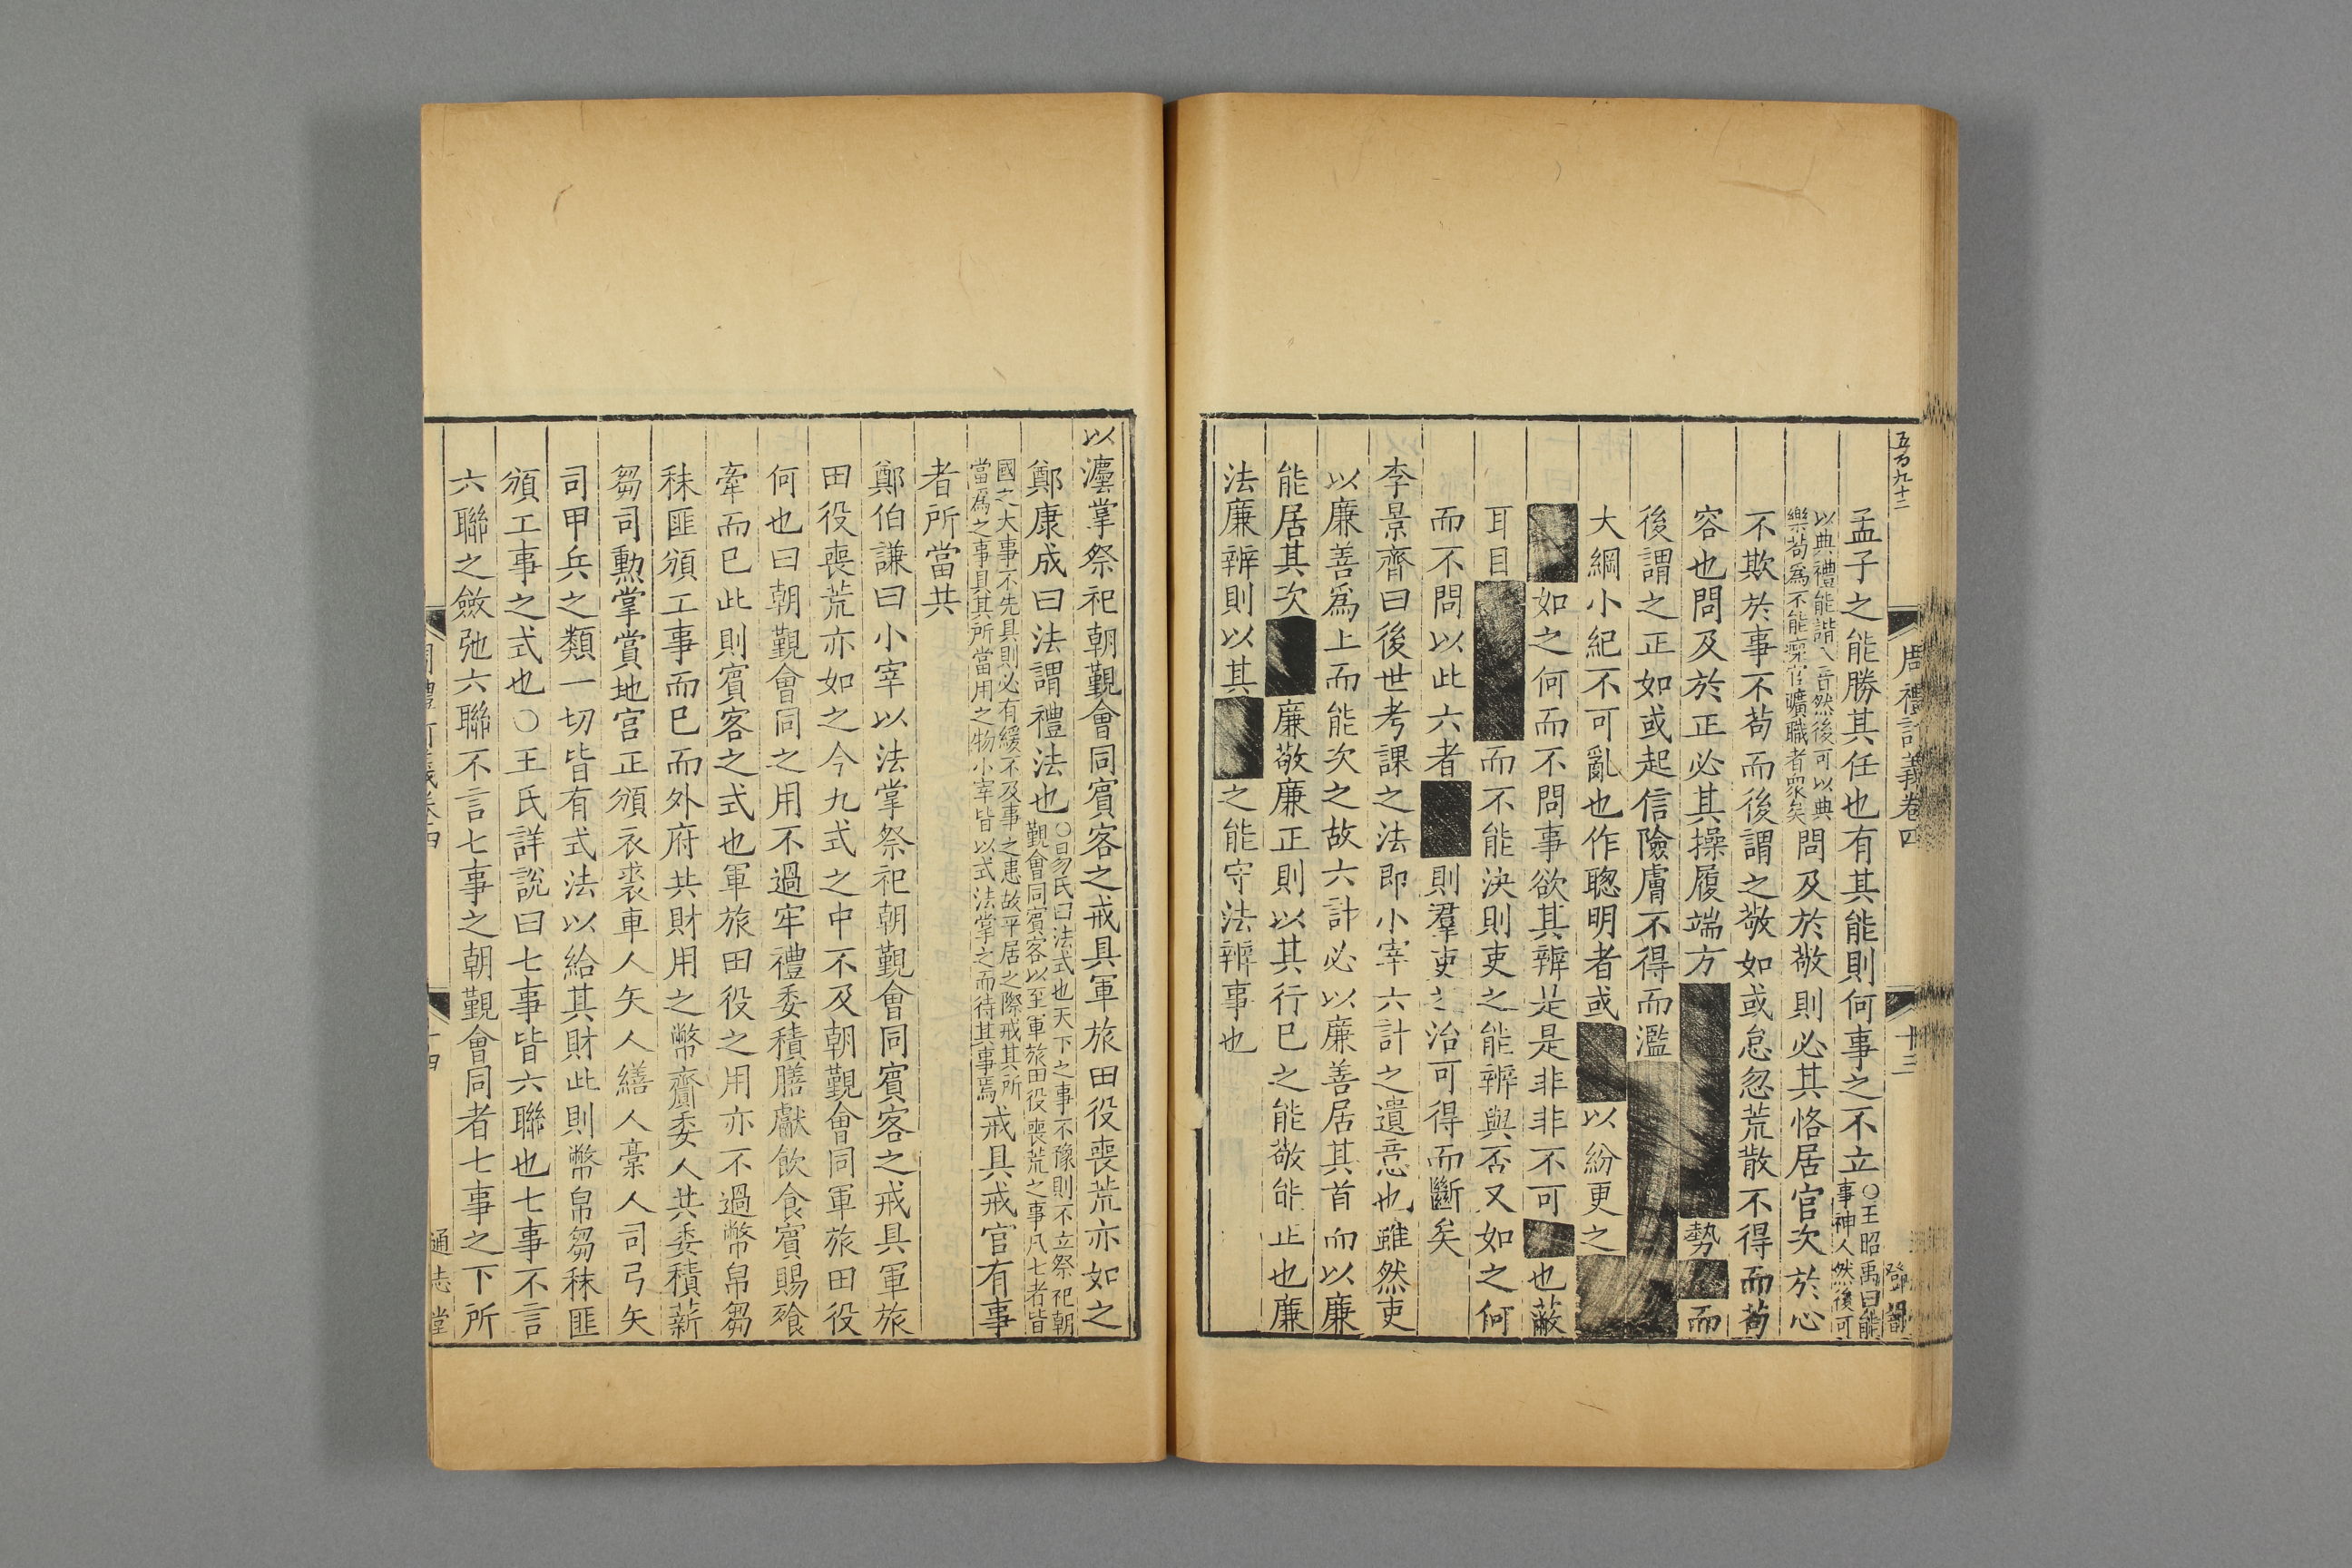 五百九十二
周禮訂義卷四
十三
孟子之能勝其任也有其能則何事之不立○王昭禹曰能事神人然後可
以典禮能諧八音然後可以典樂苟爲不能瘝官曠職者衆矣問及於敬則必其恪居官次於心
不欺於事不苟而後謂之敬如或怠忽荒散不得而苟
容也問及於正必其操履端方勢而
後謂之正如或起信險膚不得而濫
大綱小紀不可亂也作聦明者或以紛更之
如之何而不問事欲其辨是是非非不可也蔽
耳目而不能決則吏之能辨與否又如之何
而不問以此六者則羣吏之治可得而斷矣
李景齊曰後世考課之法即小宰六計之遺意也雖然吏
以廉善爲上而能次之故六計必以廉善居其首而以廉
能居其次廉敬廉正則以其行已之能敬能正也廉
法廉辨則以其之能守法辨事也
以灋掌祭祀朝覲會同賓客之戒具軍旅田役喪荒亦如之
鄭康成曰法謂禮法也○易氏曰法式也天下之事不豫則不立祭祀朝覲會同賓客以至軍旅田役喪荒之事凡七者皆
國之大事不先具則必有緩不及事之患故平居之際戒其所當爲之事具其所當用之物小宰皆以式法掌之而待其事焉戒具戒官有事
者所當共
鄭伯謙曰小宰以法掌祭祀朝覲會同賓客之戒具軍旅
田役喪荒亦如之今九式之中不及朝覲會同軍旅田役
何也曰朝覲會同之用不過牢禮委積膳獻飲食賓賜飱
牽而已此則賓客之式也軍旅田役之用亦不過幣帛芻
秣匪頒工事而已而外府共財用之幣齎委人共委積薪
芻司勲掌賞地宫正頒衣裘車人矢人繕人稾人司弓矢
司甲兵之類一切皆有式法以給其財此則幣帛芻秣匪
頒工事之式也○王氏詳說曰七事皆六聯也七事不言
六聯之斂弛六聯不言七事之朝覲會同者七事之下所
十四
通志堂